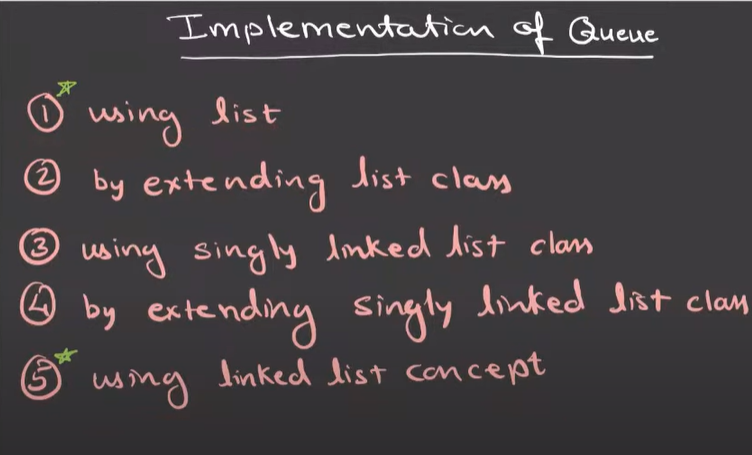 Implementation of Queue
① using list
② by extending list class
③ using singly linked list class
④ by extending singly linked list class
⑤ using linked list concept